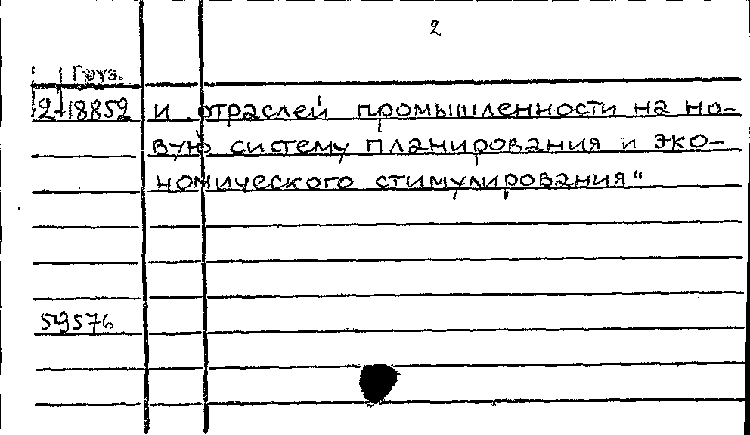 2
Груз.
2-18852 и отраслей промышленности на но-
вую систему планирования и эко-
номического стимулирования"
59576